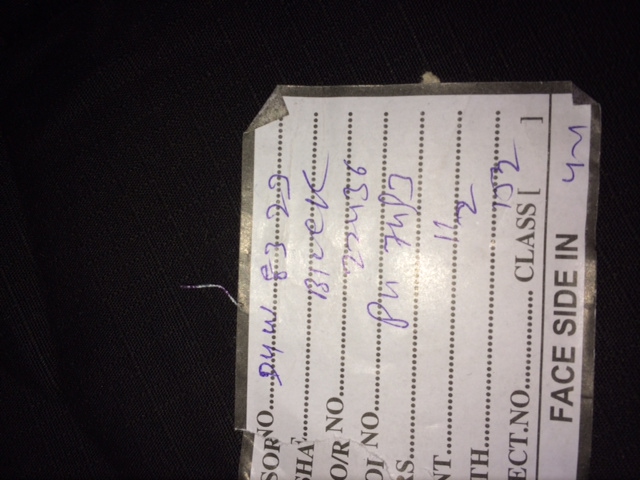 SOR NO. DYW 8323
SHA
O/R NO. 22436
OI NO. PU 7483
RS. 11
NT. 2
TH. 152
ECT.NO. CLASS [ ]
FACE SIDE IN